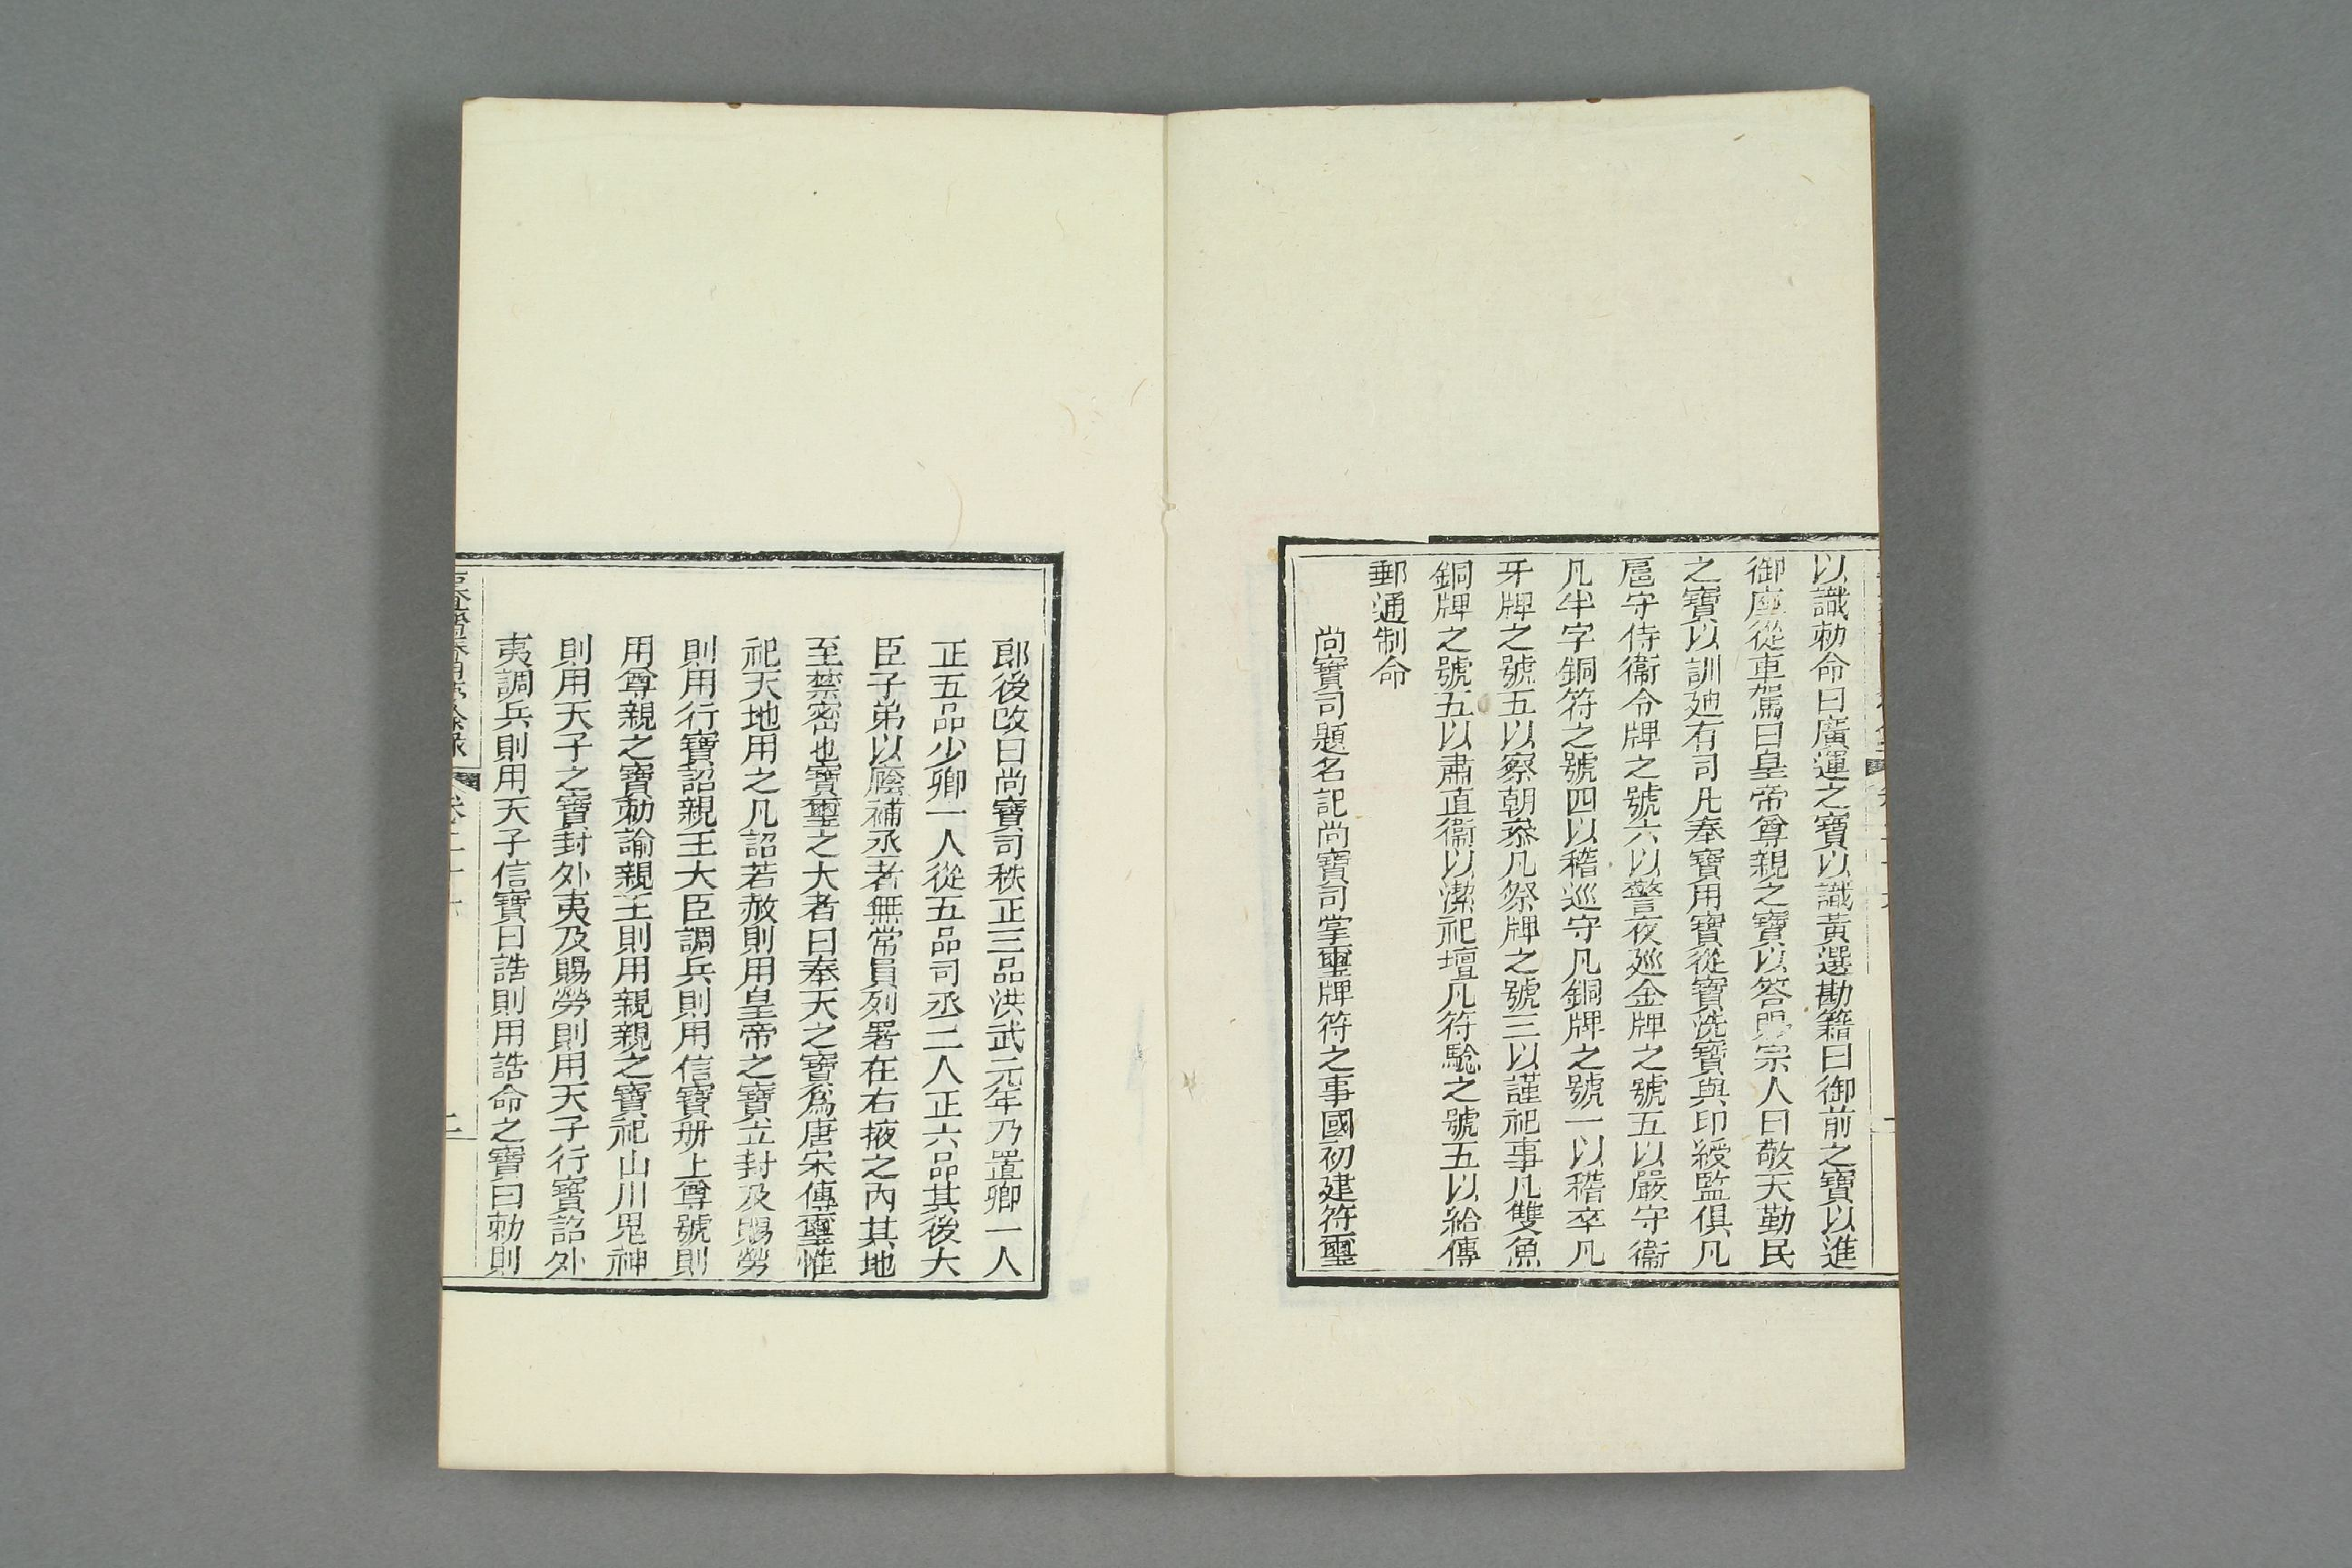 以識勅命曰廣運之寶以識黃選勘籍曰御前之寶以進
御座從車駕曰皇帝尊親之寶以答賜宗人曰敬天勤民
之寶以訓廸有司凡奉寶用寶從寶洗寶與印綬監俱凡
扈守侍衞令牌之號六以警夜廵金牌之號五以嚴守衞
凡半字銅符之號四以稽巡守凡銅牌之號一以稽卒凡
牙牌之號五以察朝叅凡祭牌之號三以謹祀事凡雙魚
銅牌之號五以肅直衞以潔祀壇凡符驗之號五以給傳
郵通制命
尚寶司題名記尚寶司掌璽牌符之事國初建符璽
郎後改曰尚寶司秩正三品洪武元年乃置卿一人
正五品少卿一人從五品司丞二人正六品其後大
臣子弟以廕補丞者無常員列署在右掖之內其地
至禁密也寶璽之大者曰奉天之寶爲唐宋傳璽惟
祀天地用之凡詔若赦則用皇帝之寶立封及賜勞
則用行寶詔親王大臣調兵則用信寶册上尊號則
用尊親之寶勅諭親王則用親親之寶祀山川鬼神
則用天子之寶封外夷及賜勞則用天子行寶詔外
夷調兵則用天子信寶曰誥則用誥命之寶曰勅則